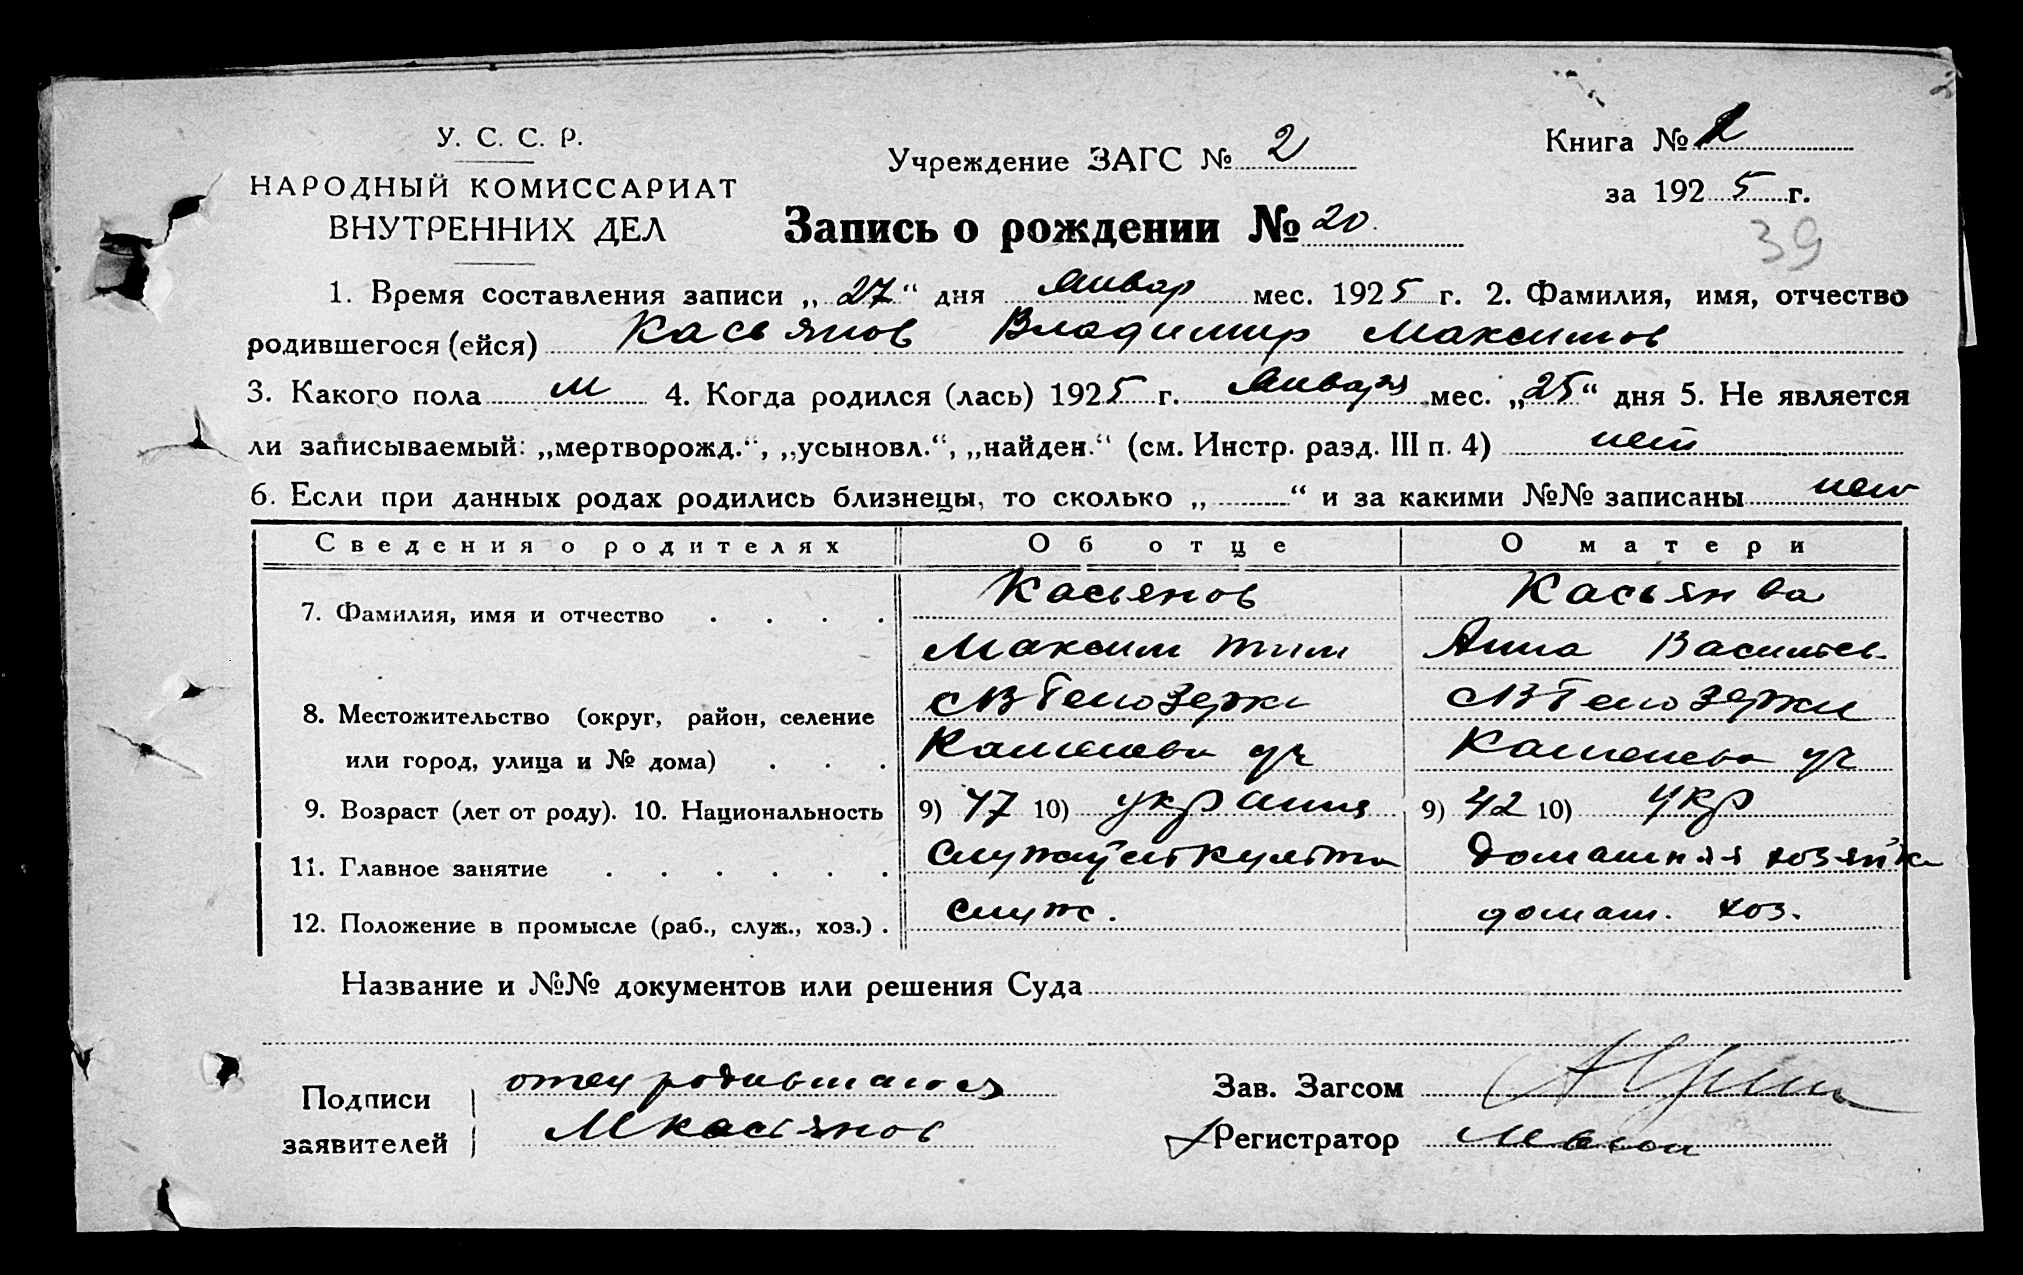 У. С. С. Р.
НАРОДНЫЙ КОМИССАРИАТ
ВНУТРЕННИХ ДЕЛ
Учреждение ЗАГС № 2
Книга №
за 1925 г.
Запись о рождении № 20.
39
1. Время составления записи „27“ дня Январ мес. 1925 г. 2. Фамилия, имя, отчество
родившегося (ейся) Касьянов Владимир Максимов
3. Какого пола м 4. Когда родился (лась) 1925 г. Января мес. „25“ дня 5. Не является
ли записываемый: „мертворожд.“, „усыновл.“, „найден.“ (см. Инстр. разд. III п. 4) нет
6. Если при данных родах родились близнецы, то сколько „ “ и за какими №№ записаны нет
Сведения о родителях Об отце О матери
7. Фамилия, имя и отчество Касьянов Касьянва
Максим Тим Анна Васильев
8. Местожительство (округ, район, селение Белозерки Белозерки
или город, улица и № дома) Каменева Каменева
9. Возраст (лет от роду). 10. Национальность 9) 47 10) 9) 42 10) укр
11. Главное занятие культа домашняя хозяйка
12. Положение в промысле (раб., служ., хоз.) служ. домаш. хоз.
Название и №№ документов или решения Суда
Подписи заявителей отец родившагося
М Касьянов
Зав. Загсом
Регистратор